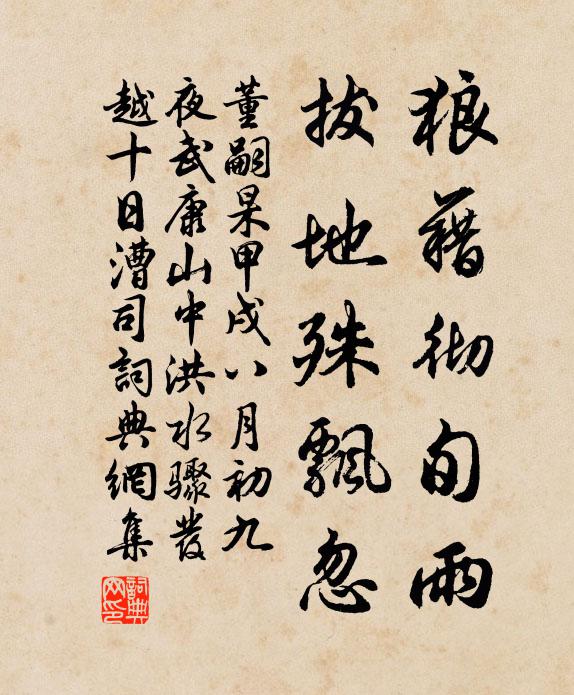 狼藉彻旬雨
拔地殊飄忽
董嗣杲甲戌八月初九
夜武康山中洪水驟發
越十日漕司詞典網集
詞典网印